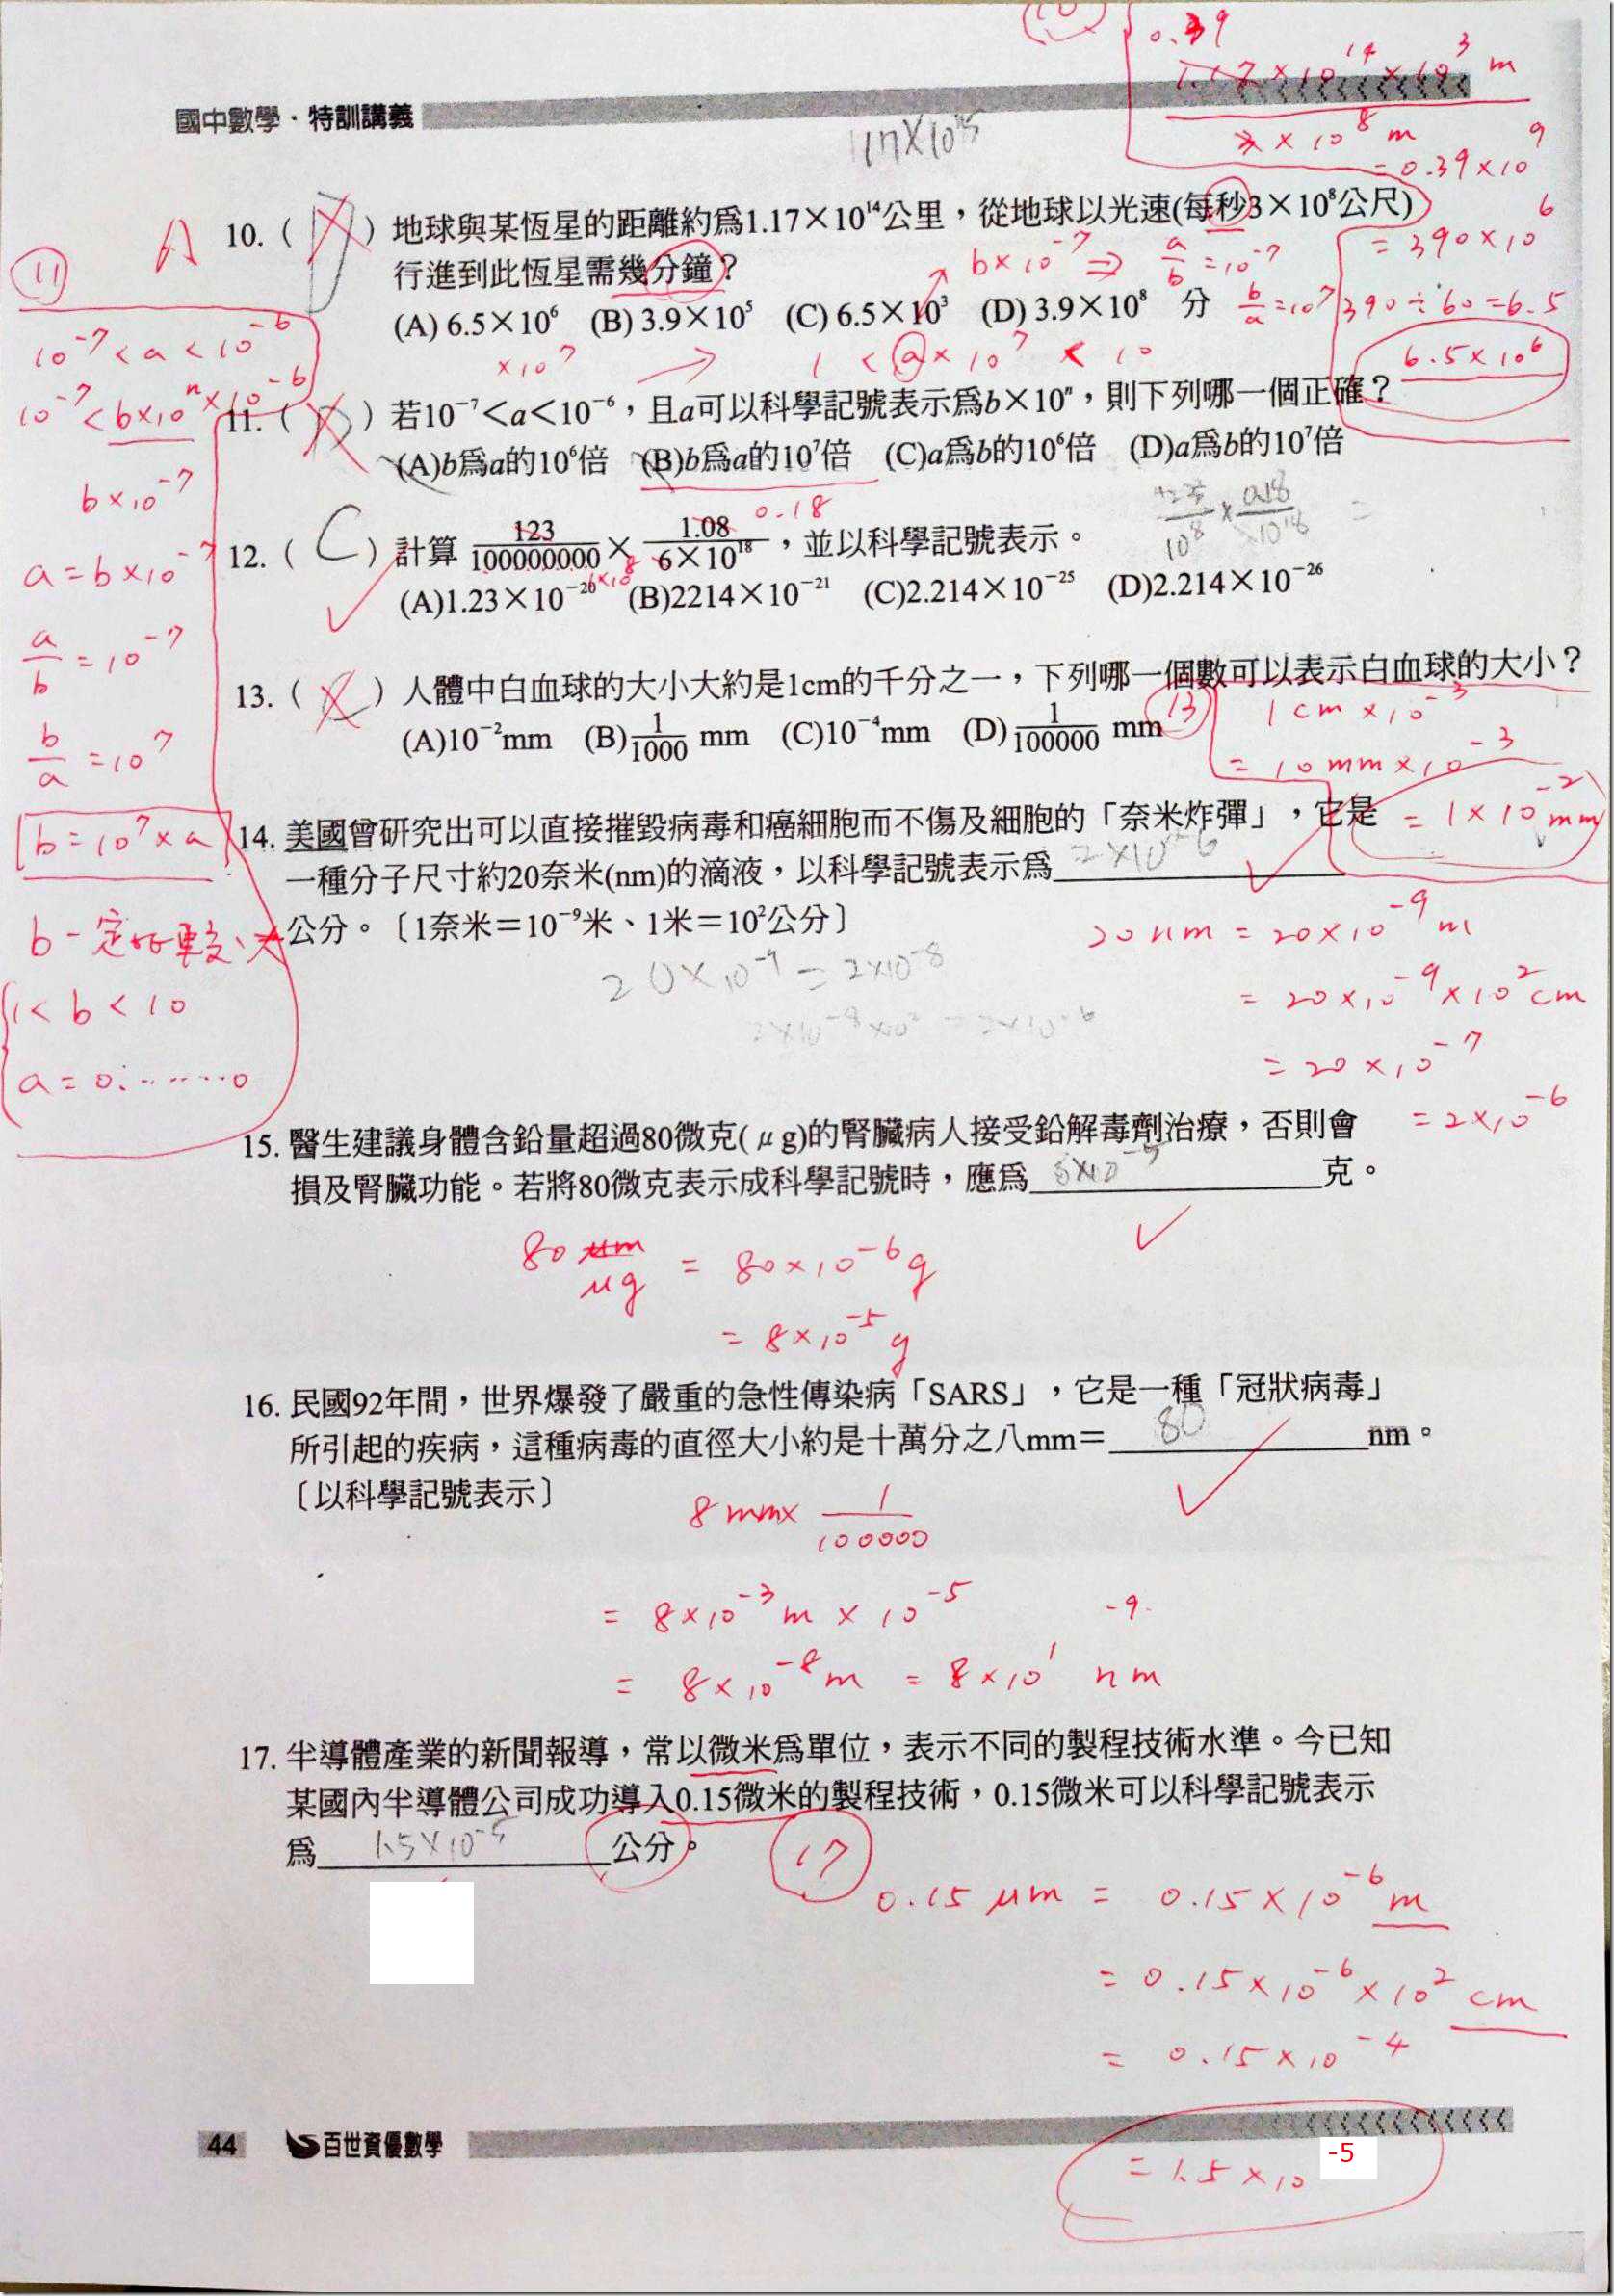 (10)
0.39
1.17×10¹⁴×10³ m
3×10⁸ m
=0.39×10⁹
=390×10⁶
390÷60=6.5
6.5×10⁶
國中數學・特訓講義
117×10¹⁵
A
10. ( ) 地球與某恆星的距離約為1.17×10¹⁴公里，從地球以光速(每秒3×10⁸公尺)
行進到此恆星需幾分鐘？
b×10⁻⁷ ⇒ a/b=10⁻⁷
(A) 6.5×10⁶ (B) 3.9×10⁵ (C) 6.5×10³ (D) 3.9×10⁸ 分
b/a=10⁷
×10⁷ → 1<a×10⁷<10
11. ( ) 若10⁻⁷＜a＜10⁻⁶，且a可以科學記號表示為b×10ⁿ，則下列哪一個正確？
(A)b為a的10⁶倍 (B)b為a的10⁷倍 (C)a為b的10⁶倍 (D)a為b的10⁷倍
(11)
10⁻⁷<a<10⁻⁶
10⁻⁷<b×10ⁿ×10⁻⁶
b×10⁻⁷
a=b×10⁻⁷
a/b=10⁻⁷
b/a=10⁷
b=10⁷×a
b一定比較大
1<b<10
a=0.……0
0.18
12. ( C ) 計算 123/100000000 × 1.08/6×10¹⁸，並以科學記號表示。
(A)1.23×10⁻²⁰ (B)2214×10⁻²¹ (C)2.214×10⁻²⁵ (D)2.214×10⁻²⁶
13. ( C ) 人體中白血球的大小大約是1cm的千分之一，下列哪一個數可以表示白血球的大小？
(A)10⁻²mm (B)1/1000 mm (C)10⁻⁴mm (D)1/100000 mm
(13)
1cm×10⁻³
=10mm×10⁻³
=1×10⁻²mm
14. 美國曾研究出可以直接摧毀病毒和癌細胞而不傷及細胞的「奈米炸彈」，它是
一種分子尺寸約20奈米(nm)的滴液，以科學記號表示為 2×10⁻⁶
公分。〔1奈米＝10⁻⁹米、1米＝10²公分〕
20×10⁻⁹=2×10⁻⁸
2×10⁻⁸×10²=2×10⁻⁶
20nm=20×10⁻⁹m
=20×10⁻⁹×10²cm
=20×10⁻⁷
=2×10⁻⁶
15. 醫生建議身體含鉛量超過80微克(μg)的腎臟病人接受鉛解毒劑治療，否則會
損及腎臟功能。若將80微克表示成科學記號時，應為 8×10⁻⁵ 克。
80 μm
μg = 80×10⁻⁶g
=8×10⁻⁵g
16. 民國92年間，世界爆發了嚴重的急性傳染病「SARS」，它是一種「冠狀病毒」
所引起的疾病，這種病毒的直徑大小約是十萬分之八mm＝ 80 nm。
〔以科學記號表示〕
8mm×1/100000
=8×10⁻³m×10⁻⁵
-9
=8×10⁻⁸m=8×10¹ nm
17. 半導體產業的新聞報導，常以微米為單位，表示不同的製程技術水準。今已知
某國內半導體公司成功導入0.15微米的製程技術，0.15微米可以科學記號表示
為 1.5×10⁻⁵ 公分。
(17)
0.15μm=0.15×10⁻⁶m
=0.15×10⁻⁶×10²cm
=0.15×10⁻⁴
=1.5×10 -5
44 百世資優數學